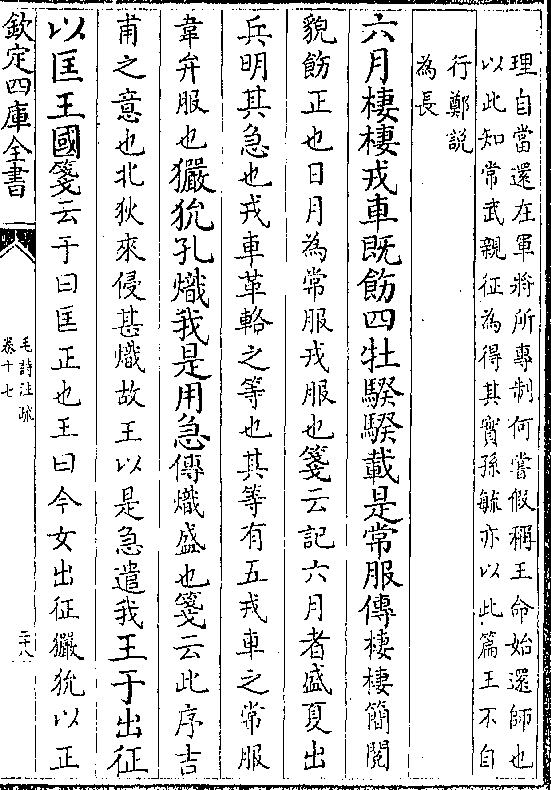 理自當還在軍將所專制何嘗假稱王命始還師也
以此知常武親征為得其實孫毓亦以此篇王不自
行鄭説
為長
六月棲棲戎車既飭四牡騤騤載是常服傳棲棲簡閲
貌飭正也日月為常服戎服也箋云記六月者盛夏出
兵明其急也戎車革輅之等也其等有五戎車之常服
韋弁服也玁狁孔熾我是用急傳熾盛也箋云此序吉
甫之意也北狄來侵甚熾故王以是急遣我王于出征
以匡王國箋云于曰匡正也王曰今女出征玁狁以正
欽定四庫全書
毛詩注疏
卷十七